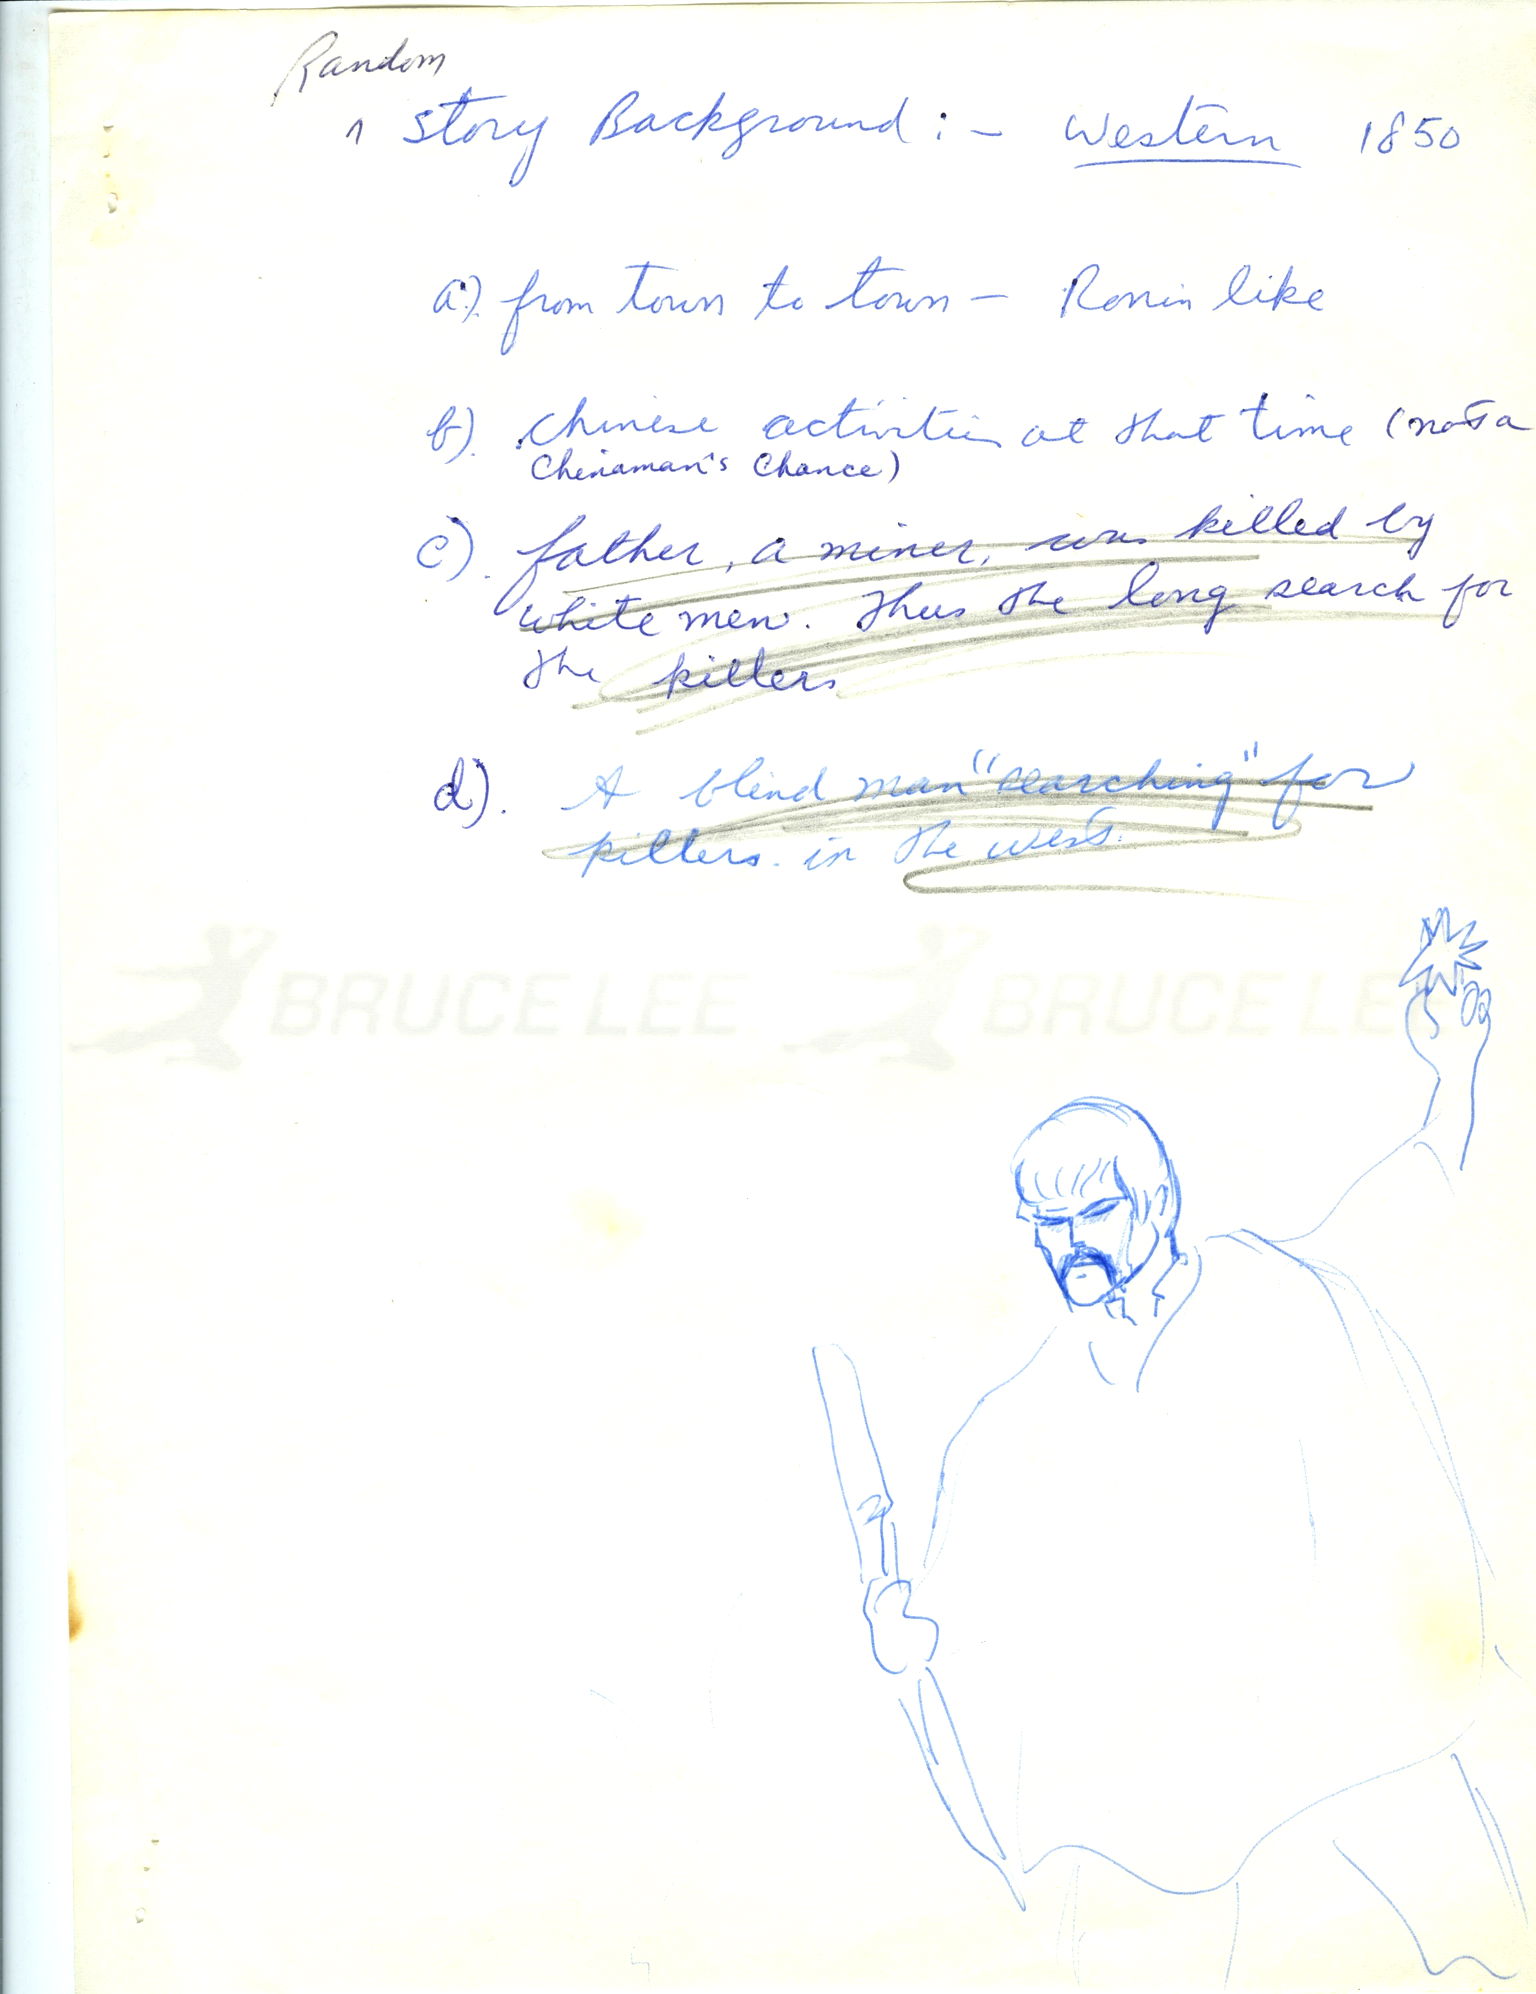 Random
^ Story Background :- Western 1850
a). from town to town - Ronin like
b). Chinese activities at that time (not a
Chinaman's Chance)
c). father, a miner, was killed by
white men. Thus the long search for
the killers
d). A blind man "searching" for
killers. in the west.
BRUCE LEE BRUCE LEE